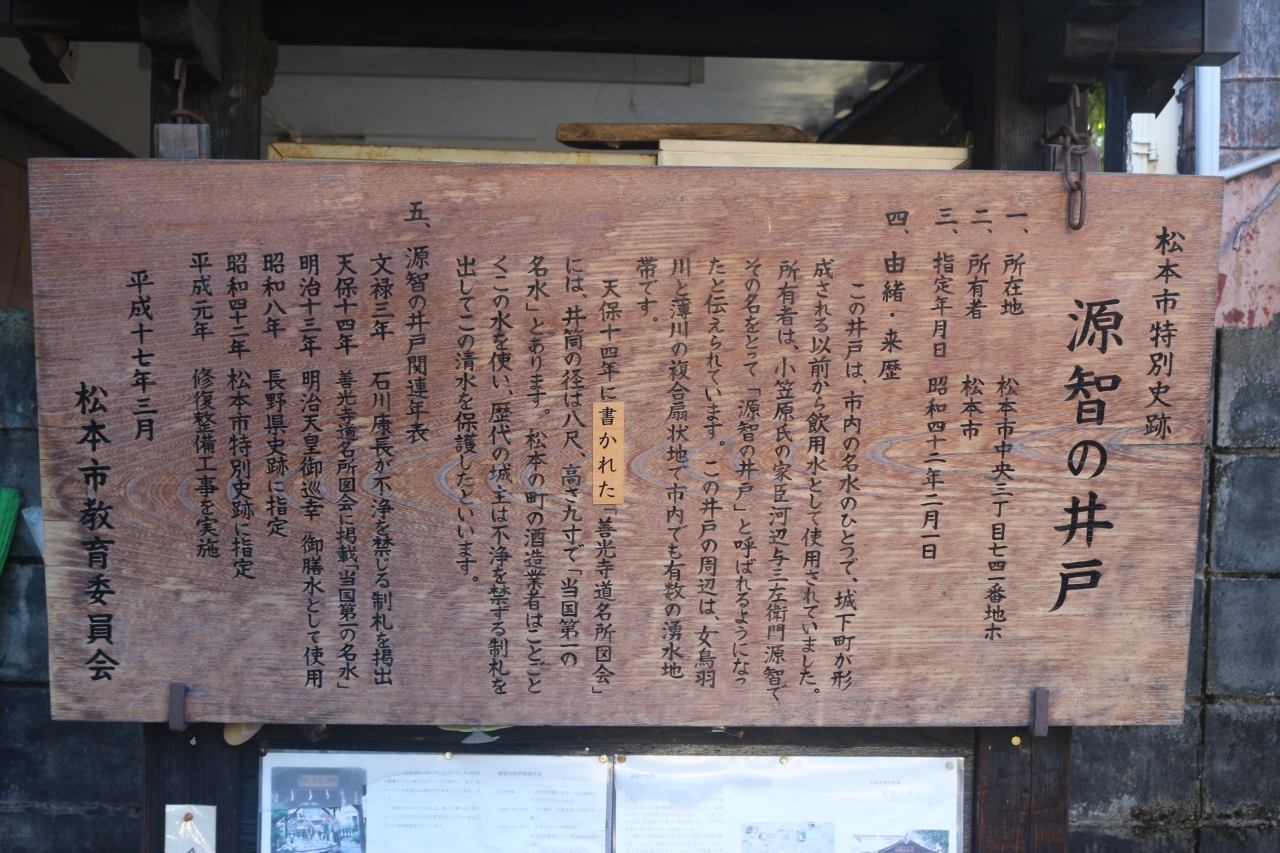 松本市特別史跡
源智の井戸
一、所在地　松本市中央三丁目七四一番地ホ
二、所有者　松本市
三、指定年月日　昭和四十二年二月一日
四、由緒・来歴
この井戸は、市内の名水のひとつで、城下町が形
成される以前から飲用水として使用されていました。
所有者は、小笠原氏の家臣河辺与三左衛門源智で
その名をとって「源智の井戸」と呼ばれるようになっ
たと伝えられています。この井戸の周辺は、女鳥羽
川と薄川の複合扇状地で市内でも有数の湧水地
帯です。
天保十四年に書かれた「善光寺道名所図会」
には、井筒の径は八尺、高さ九寸で「当国第一の
名水」とあります。松本の町の酒造業者はことごと
くこの水を使い、歴代の城主は不浄を禁ずる制札を
出してこの清水を保護したといいます。
五、源智の井戸関連年表
文禄三年　石川康長が不浄を禁じる制札を掲出
天保十四年　善光寺道名所図会に掲載「当国第一の名水」
明治十三年　明治天皇御巡幸　御膳水として使用
昭和八年　長野県史跡に指定
昭和四十二年　松本市特別史跡に指定
平成元年　修復整備工事を実施
平成十七年三月
松本市教育委員会